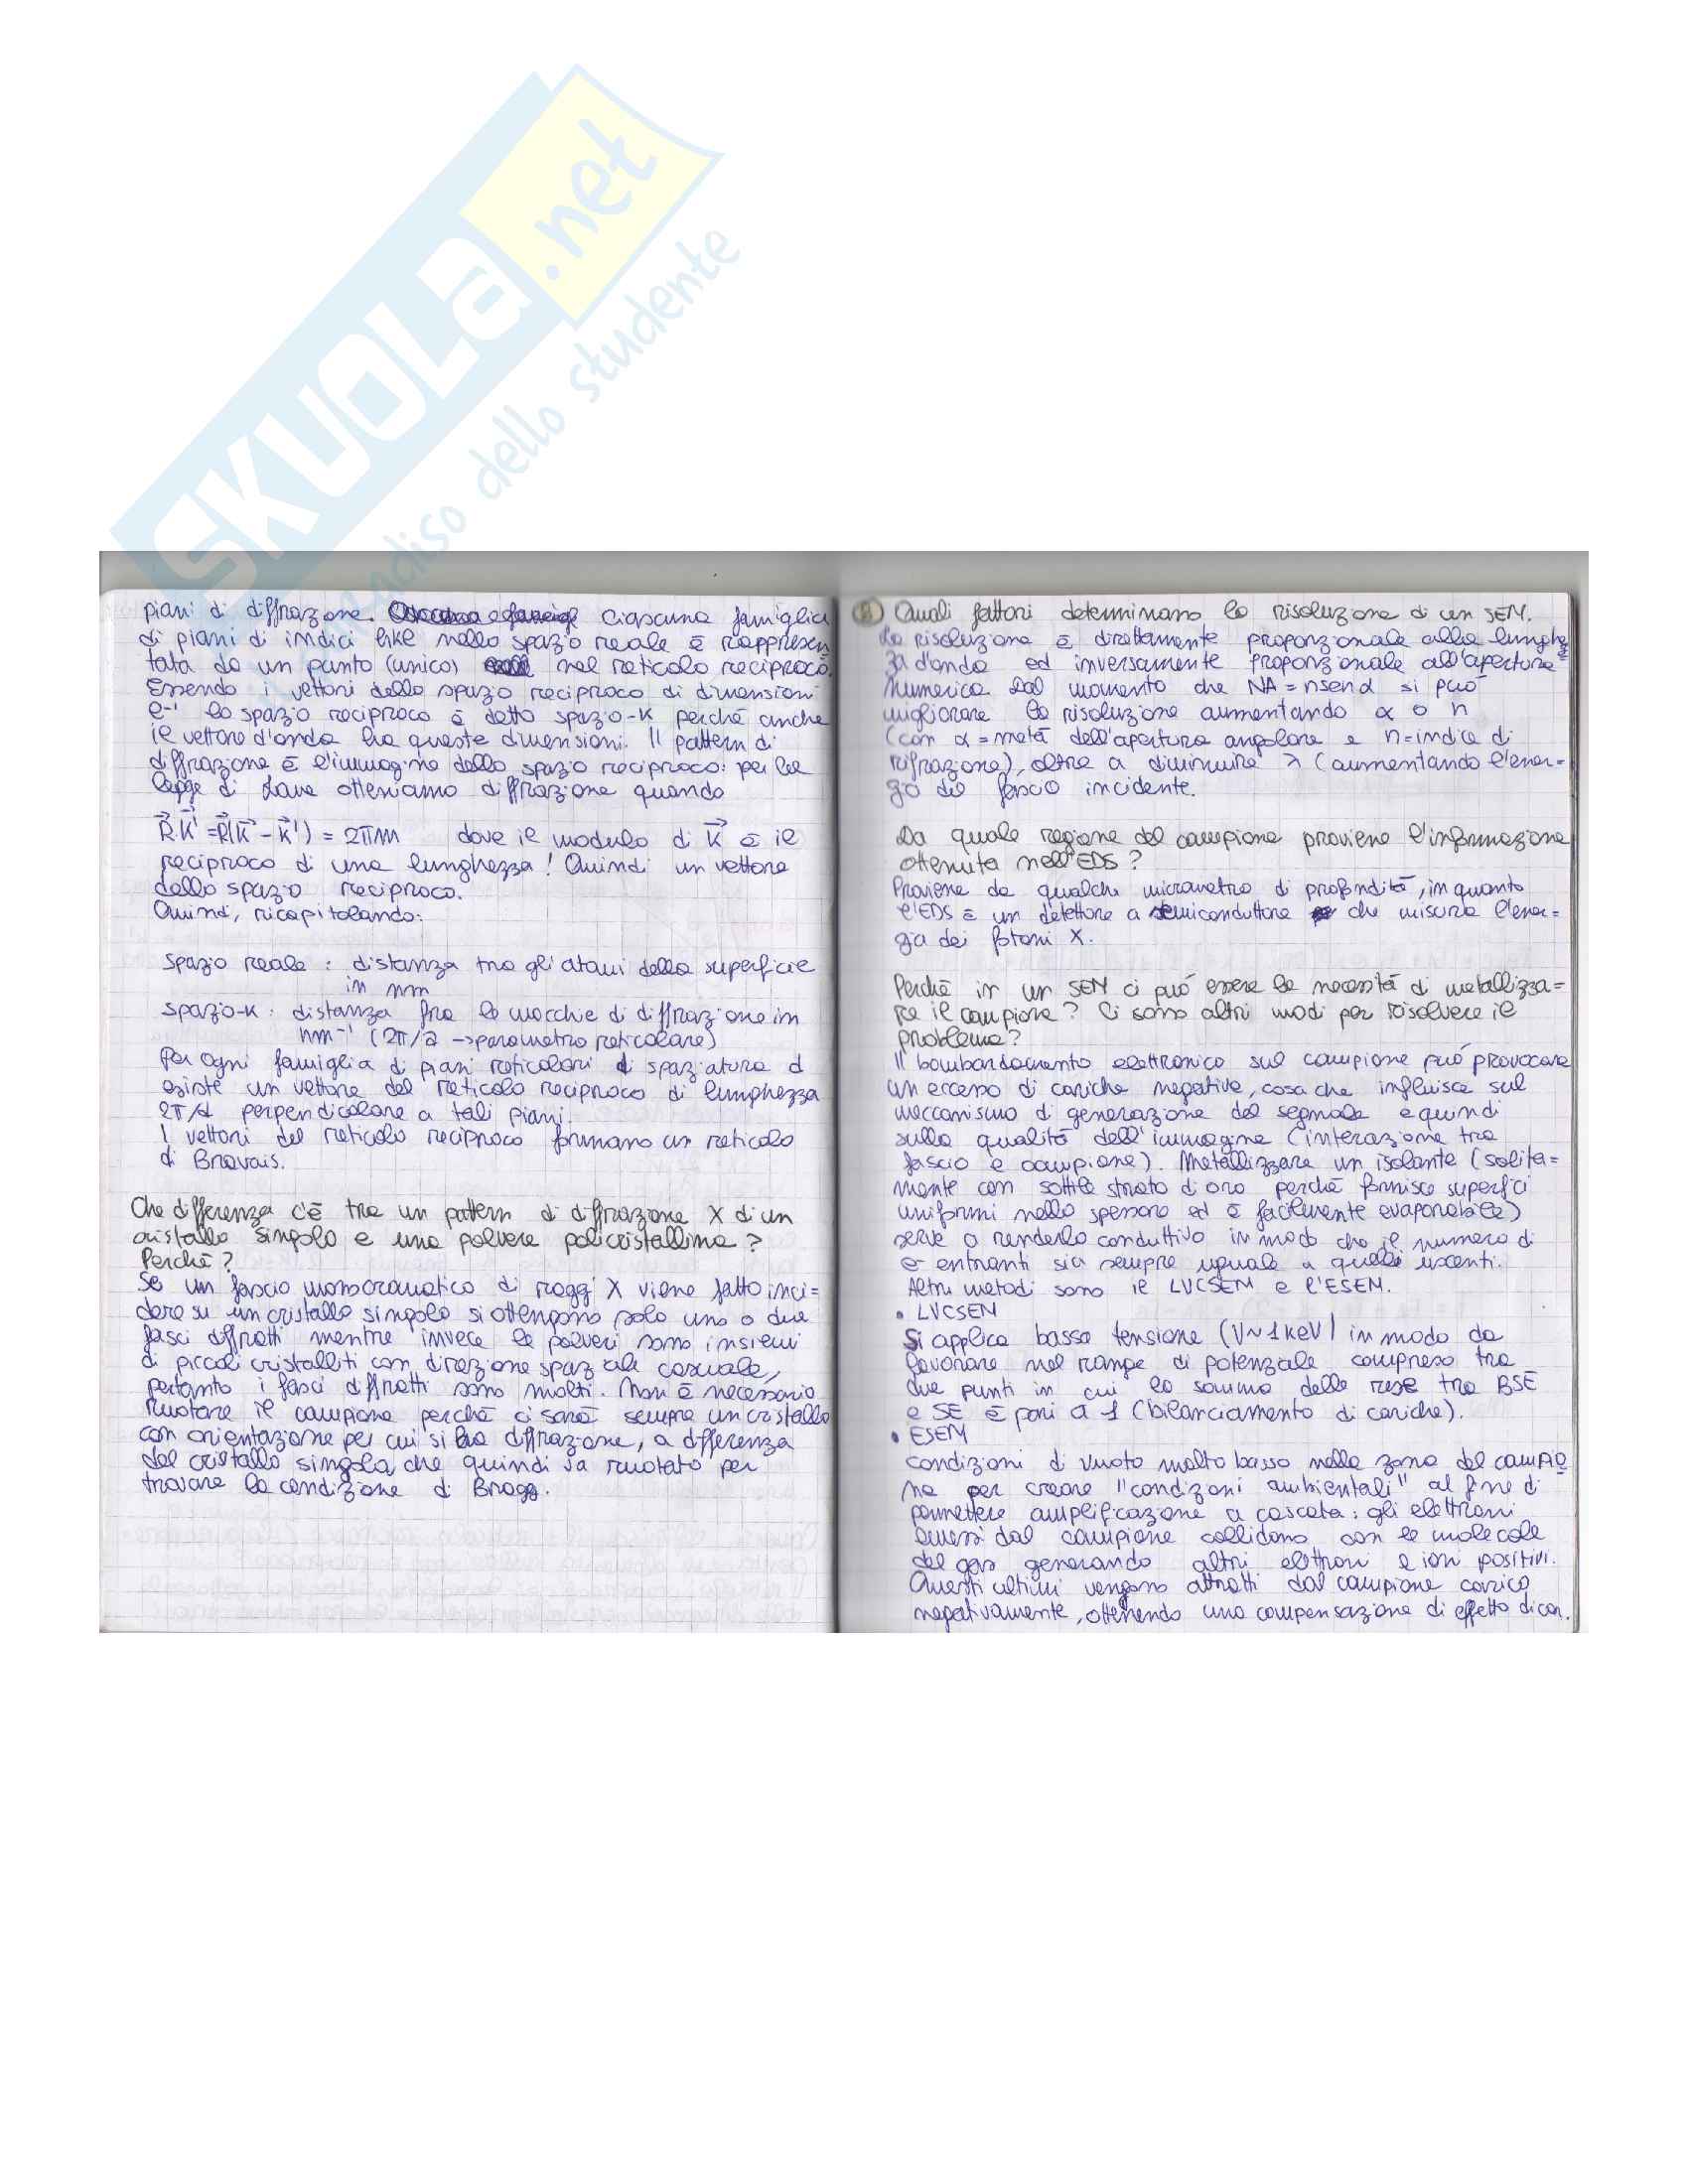 SKUOLA.net
paradiso dello studente
piani di diffrazione. Ciascuna famiglia
di piani di indici hkl nello spazio reale è rappresen
tata da un punto (unico) nel reticolo reciproco.
Essendo i vettori dello spazio reciproco di dimensioni
l⁻¹ lo spazio reciproco è detto spazio-K perché anche
il vettore d'onda ha queste dimensioni. Il pattern di
diffrazione è l'immagine dello spazio reciproco: per la
legge di Laue otteniamo diffrazione quando
R⃗K⃗ = R⃗(k⃗ - k⃗') = 2πm dove il modulo di K⃗ è il
reciproco di una lunghezza! Quindi un vettore
dello spazio reciproco.
Quindi, ricapitolando:
spazio reale : distanza tra gli atomi della superficie
in nm
spazio-k : distanza fra le macchie di diffrazione in
nm⁻¹ (2π/a → parametro reticolare)
Per ogni famiglia di piani reticolari di spaziatura d
esiste un vettore del reticolo reciproco di lunghezza
2π/d perpendicolare a tali piani.
I vettori del reticolo reciproco formano un reticolo
di Bravais.
Che differenza c'è tra un pattern di diffrazione X di un
cristallo singolo e una polvere policristallina?
Perché?
Se un fascio monocromatico di raggi X viene fatto inci=
dere su un cristallo singolo si ottengono solo uno o due
fasci diffratti mentre invece le polveri sono insiemi
di piccoli cristalliti con direzione spaziale casuale,
pertanto i fasci diffratti sono molti. Non è necessario
ruotare il campione perché ci sarà sempre un cristallo
con orientazione per cui si ha diffrazione, a differenza
del cristallo singolo, che quindi va ruotato per
trovare la condizione di Bragg.
Quali fattori determinano la risoluzione di un SEM.
La risoluzione è direttamente proporzionale alla lunghez
za d'onda ed inversamente proporzionale all'apertura
numerica. Dal momento che NA = nsenα si può
migliorare la risoluzione aumentando α o n
(con α = metà dell'apertura angolare e n = indice di
rifrazione), oltre a diminuire λ (aumentando l'ener=
gia del fascio incidente.
Da quale regione del campione proviene l'informazione
ottenuta nell'EDS?
Proviene da qualche micrometro di profondità, in quanto
l'EDS è un detettore a semiconduttore che misura l'ener=
gia dei fotoni X.
Perché in un SEM ci può essere la necessità di metallizza=
re il campione? Ci sono altri modi per risolvere il
problema?
Il bombardamento elettronico sul campione può provocare
un eccesso di cariche negative, cosa che influisce sul
meccanismo di generazione del segnale e quindi
sulla qualità dell'immagine (interazione tra
fascio e campione). Metallizzare un isolante (solita=
mente con sottile strato d'oro perché fornisce superfici
uniformi nello spessore ed è facilmente evaporabile)
serve a renderlo conduttivo in modo che il numero di
e⁻ entranti sia sempre uguale a quelli uscenti.
Altri metodi sono il LVCSEM e l'ESEM.
• LVCSEM
Si applica bassa tensione (V~1keV) in modo da
lavorare nel range di potenziale compreso tra
due punti in cui la somma delle rese tra BSE
e SE è pari a 1 (bilanciamento di cariche).
• ESEM
Condizioni di vuoto molto basso nella zona del campio
ne per creare "condizioni ambientali" al fine di
permettere amplificazione a cascata: gli elettroni
emessi dal campione collidono con le molecole
del gas generando altri elettroni e ioni positivi.
Questi ultimi vengono attratti dal campione carico
negativamente, ottenendo una compensazione di effetto di car.